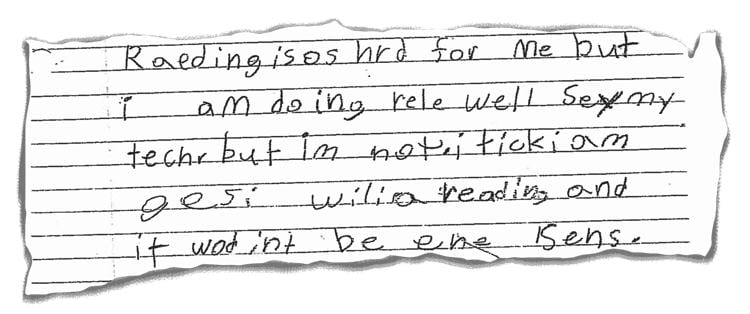 Raeding is os hrd for me but
i am doing rele well Sey my
techr but im not. i tick i am
gesi wili a reading and
it wod int be ene sens.